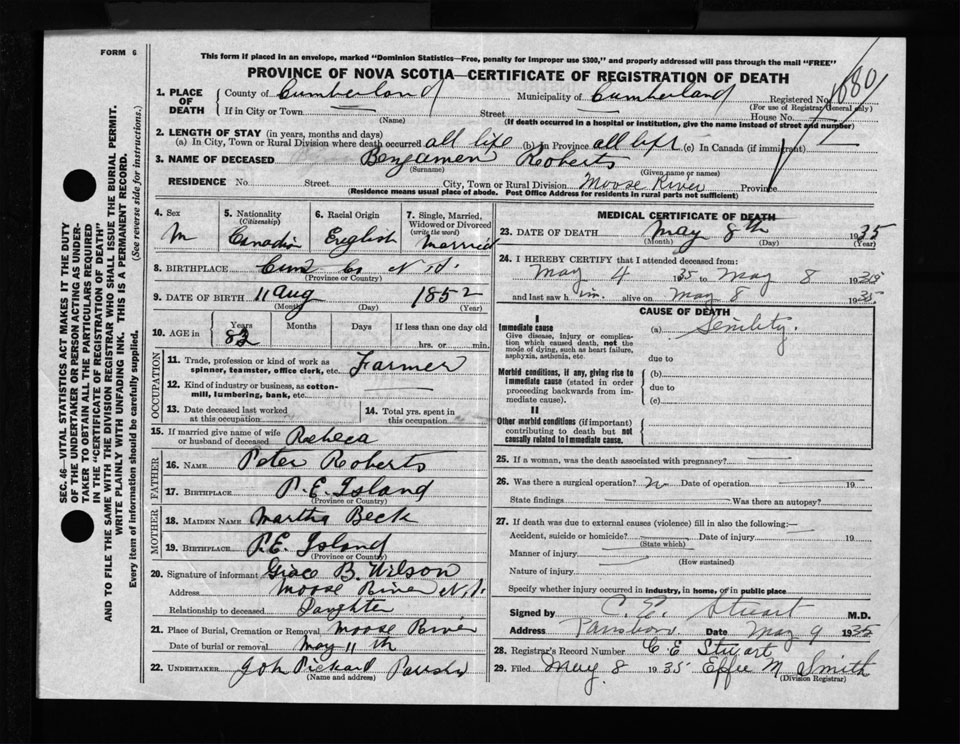 FORM 6
This form if placed in an envelope, marked "Dominion Statistics—Free, penalty for improper use $300," and properly addressed will pass through the mail "FREE"
PROVINCE OF NOVA SCOTIA—CERTIFICATE OF REGISTRATION OF DEATH
1. PLACE OF DEATH
County of Cumberland Municipality of Cumberland Registered No.
(For use of Registrar General only)
If in City or Town Street House No.
(Name) (If death occurred in a hospital or institution, give the name instead of street and number)
2. LENGTH OF STAY (in years, months and days)
(a) In City, Town or Rural Division where death occurred all life (b) in Province all life (c) In Canada (if immigrant)
3. NAME OF DECEASED Benjamen Roberts
(Surname) (Given name or names)
RESIDENCE No. Street City, Town or Rural Division Moose River Province
(Residence means usual place of abode. Post Office Address for residents in rural parts not sufficient)
4. Sex
M
5. Nationality
(Citizenship)
Canadian
6. Racial Origin
English
7. Single, Married, Widowed or Divorced
(write the word)
Married
8. BIRTHPLACE Cum Co N.S.
(Province or Country)
9. DATE OF BIRTH 11 Aug 1852
(Month) (Day) (Year)
10. AGE in
Years Months Days If less than one day old
82 hrs. or min.
OCCUPATION
11. Trade, profession or kind of work as spinner, teamster, office clerk, etc. Farmer
12. Kind of industry or business, as cotton-mill, lumbering, bank, etc.
13. Date deceased last worked at this occupation
14. Total yrs. spent in this occupation
15. If married give name of wife or husband of deceased Rebeca
FATHER
16. NAME Peter Roberts
17. BIRTHPLACE P.E. Island
(Province or Country)
MOTHER
18. MAIDEN NAME Martha Beck
19. BIRTHPLACE P.E. Island
(Province or Country)
20. Signature of informant Grace B. Wilson
Address Moose River N.S.
Relationship to deceased Daughter
21. Place of Burial, Cremation or Removal Moose River
Date of burial or removal May 11th
22. UNDERTAKER Joh Pickard
(Name and address)
MEDICAL CERTIFICATE OF DEATH
23. DATE OF DEATH May 8th 1935
(Month) (Day) (Year)
24. I HEREBY CERTIFY that I attended deceased from:
May 4 1935 to May 8 1935
and last saw him alive on May 8 1935
CAUSE OF DEATH
I
Immediate cause
Give disease, injury or complication which caused death, not the mode of dying, such as heart failure, asphyxia, asthenia, etc.
(a) Senility.
due to
Morbid conditions, if any, giving rise to immediate cause (stated in order proceeding backwards from immediate cause).
(b)
due to
(c)
II
Other morbid conditions (if important) contributing to death but not causally related to immediate cause.
25. If a woman, was the death associated with pregnancy?
26. Was there a surgical operation? Date of operation 19
State findings Was there an autopsy?
27. If death was due to external causes (violence) fill in also the following:—
Accident, suicide or homicide? Date of injury 19
(State which)
Manner of injury
(How sustained)
Nature of injury
Specify whether injury occurred in industry, in home, or in public place
Signed by C. E. Stuart M.D.
Address Parrsboro Date May 9 1935
28. Registrar's Record Number C. E Stuart
29. Filed May 8 1935 Effie M Smith
(Division Registrar)
SEC. 46—VITAL STATISTICS ACT MAKES IT THE DUTY
OF THE UNDERTAKER OR PERSON ACTING AS UNDER-
TAKER TO OBTAIN ALL THE PARTICULARS REQUIRED
IN THE "CERTIFICATE OF REGISTRATION OF DEATH"
AND TO FILE THE SAME WITH THE DIVISION REGISTRAR WHO SHALL ISSUE THE BURIAL PERMIT.
WRITE PLAINLY WITH UNFADING INK. THIS IS A PERMANENT RECORD.
Every item of information should be carefully supplied. (See reverse side for instructions.)